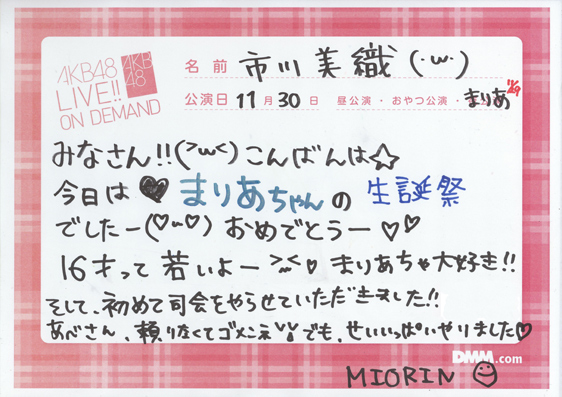 AKB48
LIVE!!
ON DEMAND
AKB
48
名前 市川美織 (·ω·)
公演日 11月30日 昼公演・おやつ公演・まりあ 11/29
みなさん!!(>ω<)こんばんは☆
今日は♥まりあちゃんの生誕祭
でしたー(♡ω♡) おめでとうー♡♡
16才って若いよー>_<♡まりあちゃ大好き!!
そして、初めて司会をやらせていただきました!!
あべさん、頼りなくてゴメンネ でも、せいいっぱいやりました♡
DMM.com
MIORIN ☺